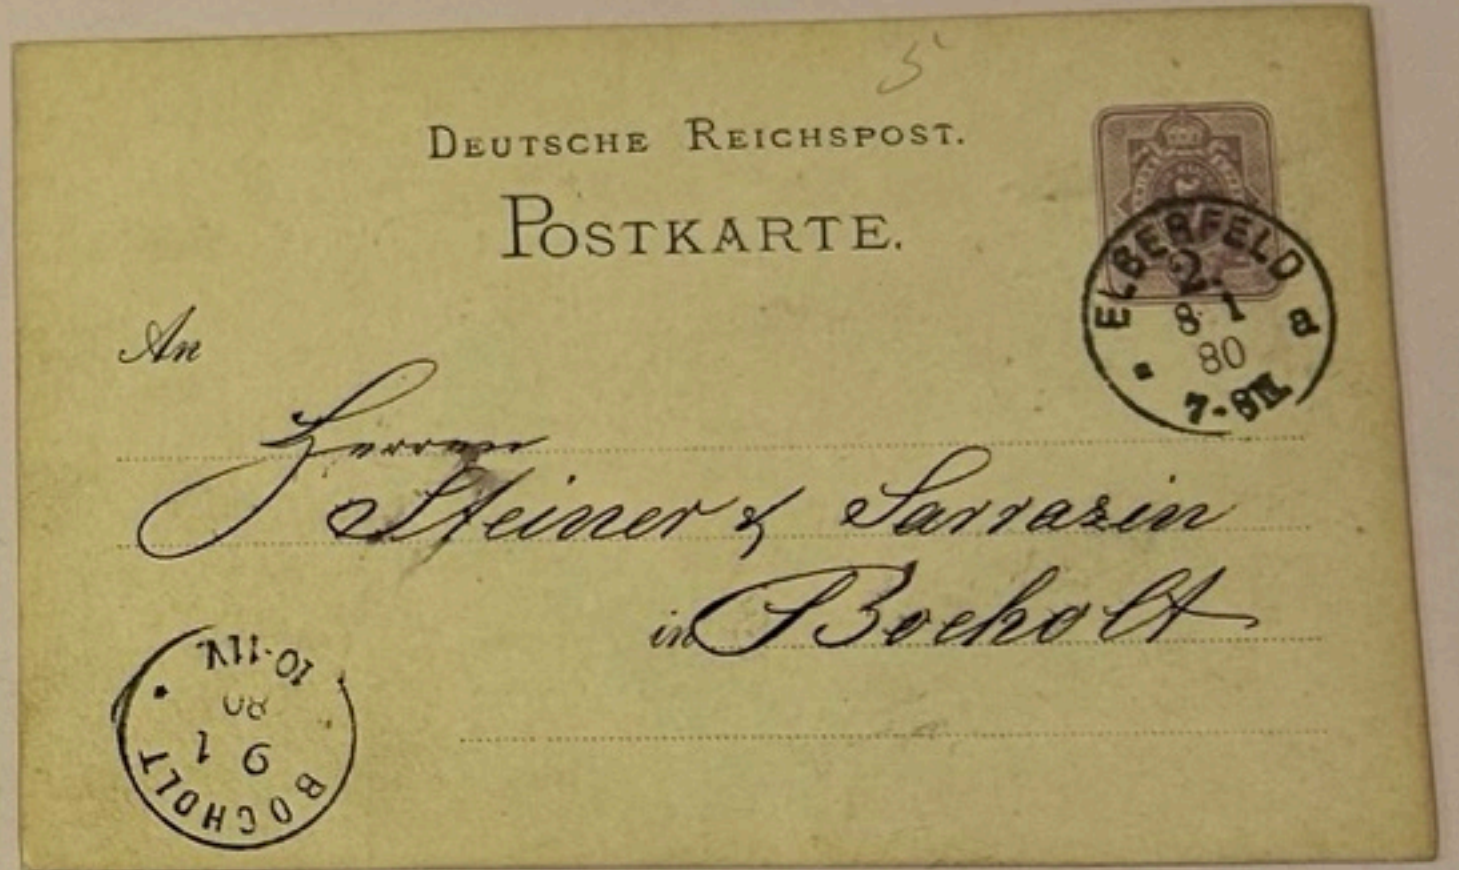 5
DEUTSCHE REICHSPOST.
POSTKARTE.
ELBERFELD
2.
8 1
80
a
7-8N.
An
Herren
Steiner & Sarrazin
in Bocholt
BOCHOLT
9 1
80
10-11V.